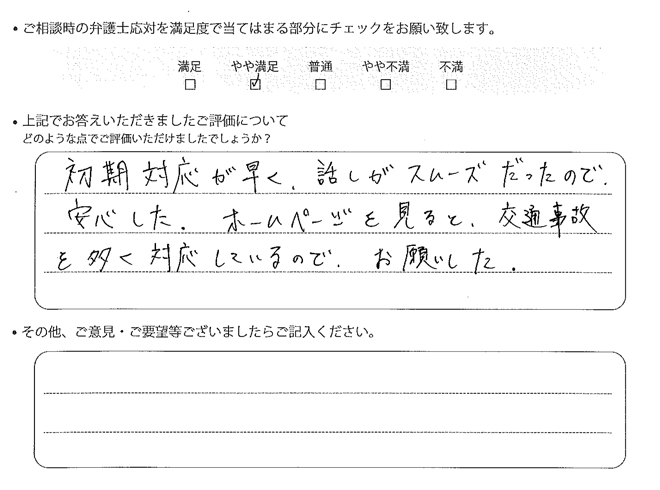 • ご相談時の弁護士応対を満足度で当てはまる部分にチェックをお願い致します。
満足 やや満足 普通 やや不満 不満
□ ☑ □ □ □
• 上記でお答えいただきましたご評価について
どのような点でご評価いただけましたでしょうか？
初期対応が早く、話しがスムーズだったので、
安心した。ホームページを見ると、交通事故
を多く対応しているので、お願いした。
• その他、ご意見・ご要望等ございましたらご記入ください。